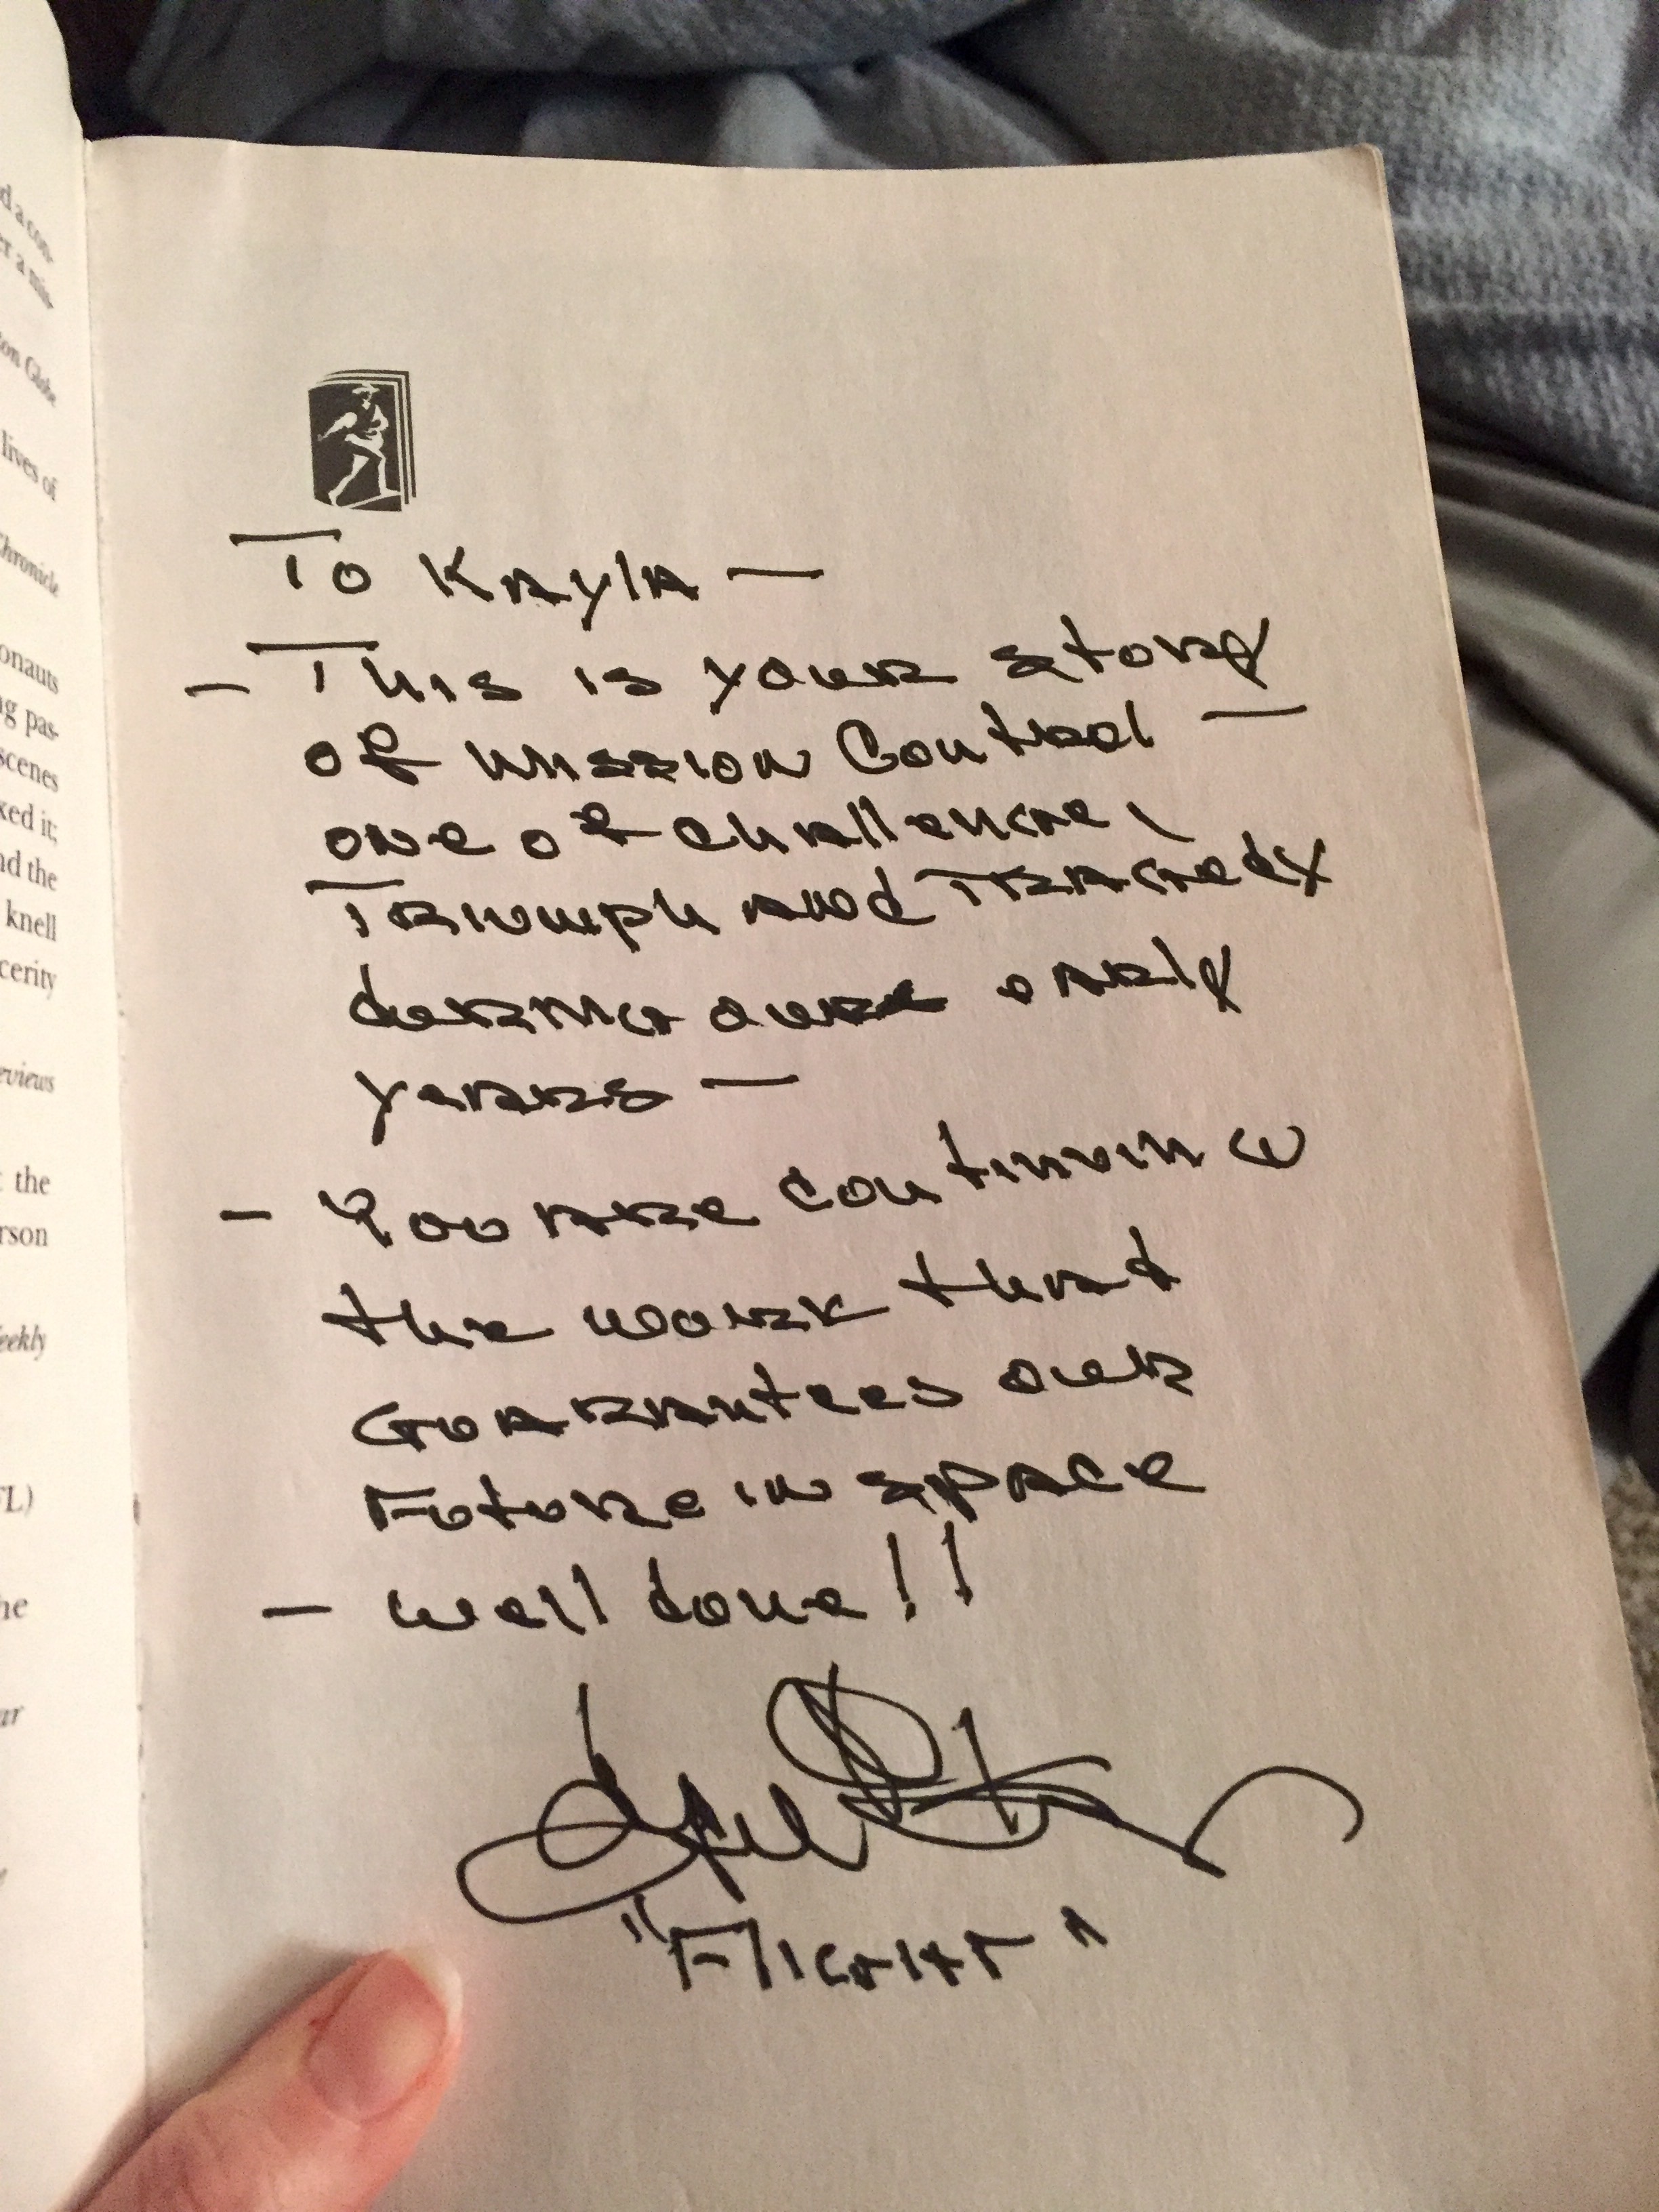 d a con-
er a mis-
ton Globe
lives of
Chronicle
onauts
ng pas-
scenes
ked it;
nd the
knell
cerity
eviews
t the
rson
eekly
FL)
he
ar
To Kayla —
- This is your story
of Mission Control —
one of challenge,
Triumph and Tragedy
during our early
years —
- You are continuing
the work that
Guarantees our
Future in space
- well done!!
"Flight"